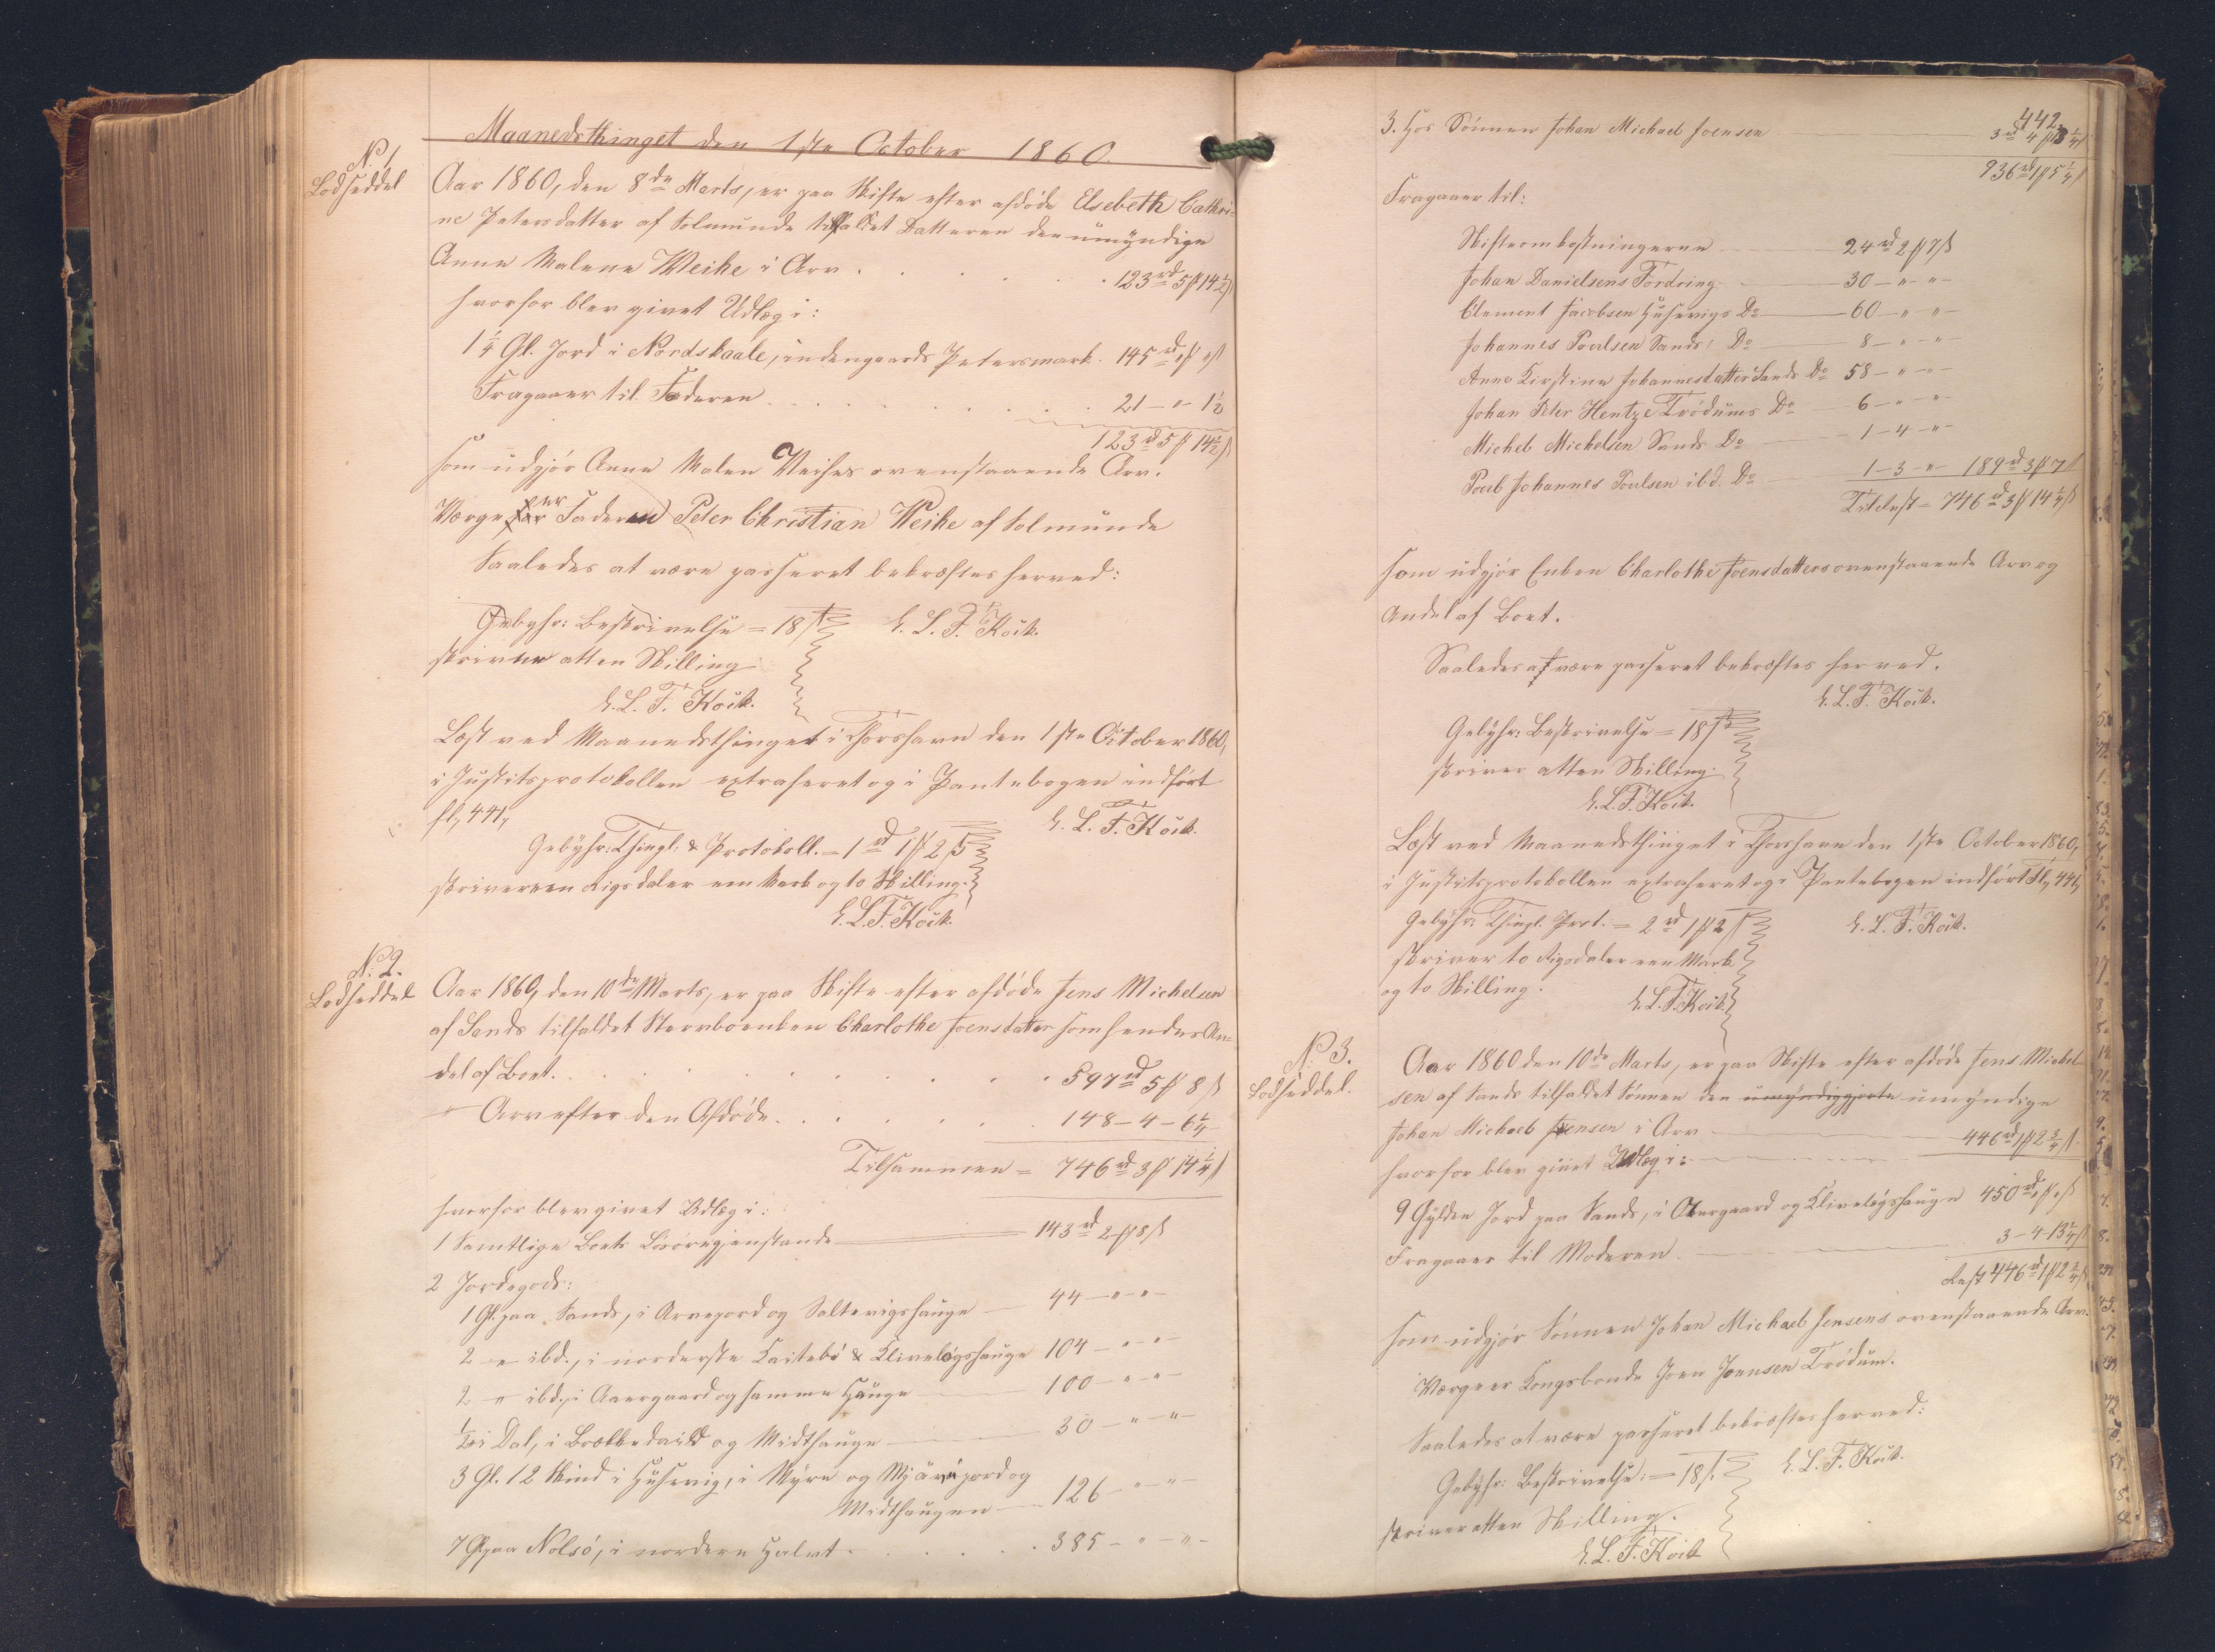 Maanedsthinget den 1ste October 1860.
N. 1,
Lodseddel
Aar 1860, den 8de Marts, er paa Skifte efter afdöde Elsebeth Cathri-
ne Petersdatter af Solmunde tilfaldet Datteren den umyndige
Anne Malene Weihe i Arv . . . . . . 123rd 5ꝑ 14½ß
hvorfor blev givet Udlæg i:
1¼ Gl. Jord i Nordskaale, indengaards Petersmark. 145rd „ꝑ „ß
Fragaaer til Faderen . . . . . . 21 – „ – 1½
123rd 5ꝑ 14½ß
som udgjör Anne Malene Weihes ovenstaaende Arv.
Værge er Faderen Peter Christian Weihe af Solmunde
Saaledes at være passeret bekræftes herved:
Gebyhr: Beskrivelse = 18ß
E. L. F. Kock.
skriver atten Skilling
E. L. F. Kock.
Læst ved Maanedsthinget i Thorshavn den 1ste October 1860,
i Justitsprotokollen extraheret og i Pantebogen indført
fl, 441,
E. L. F. Kock.
Gebyhr: Thingl: & Protokoll. = 1rd 1ꝑ 2ß
skriver een Rigsdaler een Mark og to Skilling.
E. L. F. Kock.
N. 2.
Lodseddel
Aar 1860, den 10de Marts, er paa Skifte efter afdöde Jens Michelsen
af Sands tilfaldet Stervboenken Charlothe Joensdatter som hendes An-
del af Boet . . . . . . 597rd 5ꝑ 8ß
„ Arv efter den Afdöde . . . . . 148 – 4 – 6¼
Tilsammen = 746rd 3ꝑ 14¼ß
hvorfor blev givet Udlæg i:
1 Samtlige Boets Lösöregjenstande 143rd 2ꝑ 8ß
2 Jordegods:
1 Gl. paa Sands, i Arvegord og Saltevigshauge 44 – „ – „ –
2 – „ ibd., i norderste Kaitebö & Klivelöyshauge 104 – „ „ –
2 – „ ibd., i Aaergaard og samme Hauge 100 – „ – „ –
½ i Dal, i Brækkedaild og Midthauge 30 – „ – „ –
3 Gl. 12 Skind i Husevig, i Myre og Mjävigjord og
Midthaugen 126 – „ – „
7 Gl. paa Nolsö, i nordere Halvt . . . . . 385 – „ – „ –
442.
3. Hos Sönnen Johan Michael Joensen 3rd 4ꝑ 13¼ß
936rd 1ꝑ 5¼ß
Fragaaer til:
Skifteomkostningerne 24rd 2ꝑ 7ß
Johan Danielsens Fordring 30 – „ – „ –
Clement Jacobsen Husevigs Do 60 – „ „ –
Johannes Poulsen Sands Do 8 – „ – „
Anne Kirstine Johannesdatter Sands Do 58 – „ – „ –
Johan Peter Hentze Trödums Do 6 – „ – „ –
Michel Michelsen Sands Do 1 – 4 – „ –
Poul Johannes Poulsen ibd. Do 1 – 3 – „ – 189rd 3ꝑ 7ß
Tilrest = 746rd 3ꝑ 14¼ß
som udgjör Enken Charlothe Joensdatters ovenstaaende Arv og
Andel af Boet.
Saaledes at være passeret bekræftes herved.
E. L. F. Kock.
Gebyhr: Beskrivelse = 18ß
skriver atten Skilling.
E. L. F. Kock.
Læst ved Maanedsthinget i Thorshavn den 1ste October 1860,
i Justitsprotokollen extraheret og i Pantebogen indført Fl, 441,
Gebyhr: Thingl. Prot. = 2rd 1ꝑ 2ß
E. L. F. Kock.
skriver to Rigsdaler een Mark
og to Skilling.
E. L. F. Kock
N. 3.
Lodseddel.
Aar 1860 den 10de Marts, er paa Skifte efter afdöde Jens Michel
sen af Sands tilfaldet Sönnen den umyndiggjorte umyndige
Johan Michael Jensen i Arv 446rd 1ꝑ 2¾ß.
hvorfor blev givet Udlæg i:
9 Gylden Jord paa Sands, i Aaergaard og Klivelöyshauge 450rd „ꝑ „ß
Fragaaer til Moderen 3 – 4 – 13¼ß
Rest 446rd 1ꝑ 2¾ß
som udgjör Sönnen Johan Michael Jensens ovenstaaende Arv.
Værge er Kongsbonde Joen Joensen Trödum.
Saaledes at være passeret bekræftes herved:
Gebyhr: Beskrivelse: = 18ß.
E. L. F. Kock.
skriver atten Skilling.
E. L. F. Kock